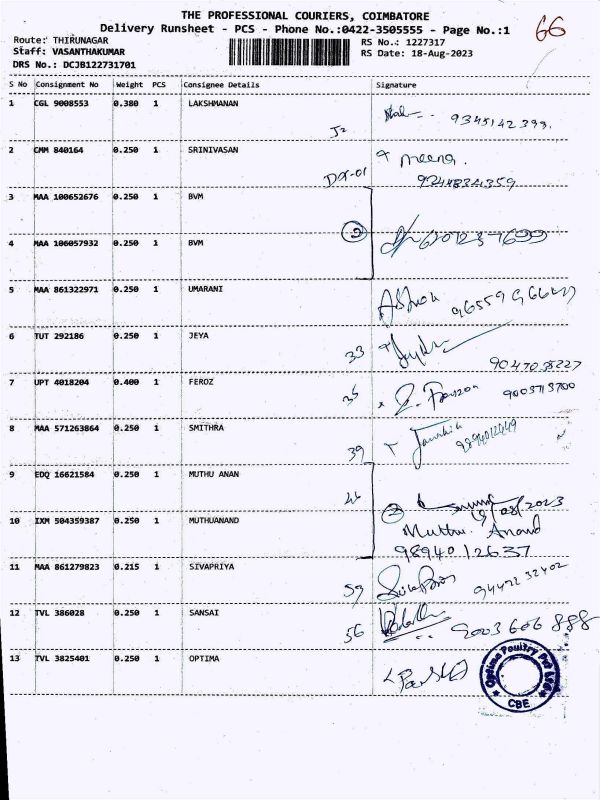 THE PROFESSIONAL COURIERS, COIMBATORE
Delivery Runsheet - PCS - Phone No.:0422-3505555 - Page No.:1
66
Route: THIRUNAGAR
RS No.: 1227317
Staff: VASANTHAKUMAR
RS Date: 18-Aug-2023
DRS No.: DCJB122731701
S No Consignment No Weight PCS Consignee Details Signature
1 CGL 9008553 0.380 1 LAKSHMANAN
2 CMM 840164 0.250 1 SRINIVASAN
Meena.
3 MAA 100652676 0.250 1 BVM
4 MAA 106057932 0.250 1 BVM
5 MAA 861322971 0.250 1 UMARANI
6 TUT 292186 0.250 1 JEYA 33
9047035227
7 UPT 4018204 0.400 1 FEROZ
9003713700
8 MAA 571263864 0.250 1 SMITHRA 39
9 EDQ 16621584 0.250 1 MUTHU ANAN
19/08/2023
10 IXM 504359387 0.250 1 MUTHUANAND
Muthu Anand
9894012637
11 MAA 861279823 0.215 1 SIVAPRIYA 59
9442232402
12 TVL 386028 0.250 1 SANSAI 56
9003606888
13 TVL 3825401 0.250 1 OPTIMA
Optima Poultry Pvt Ltd
CBE